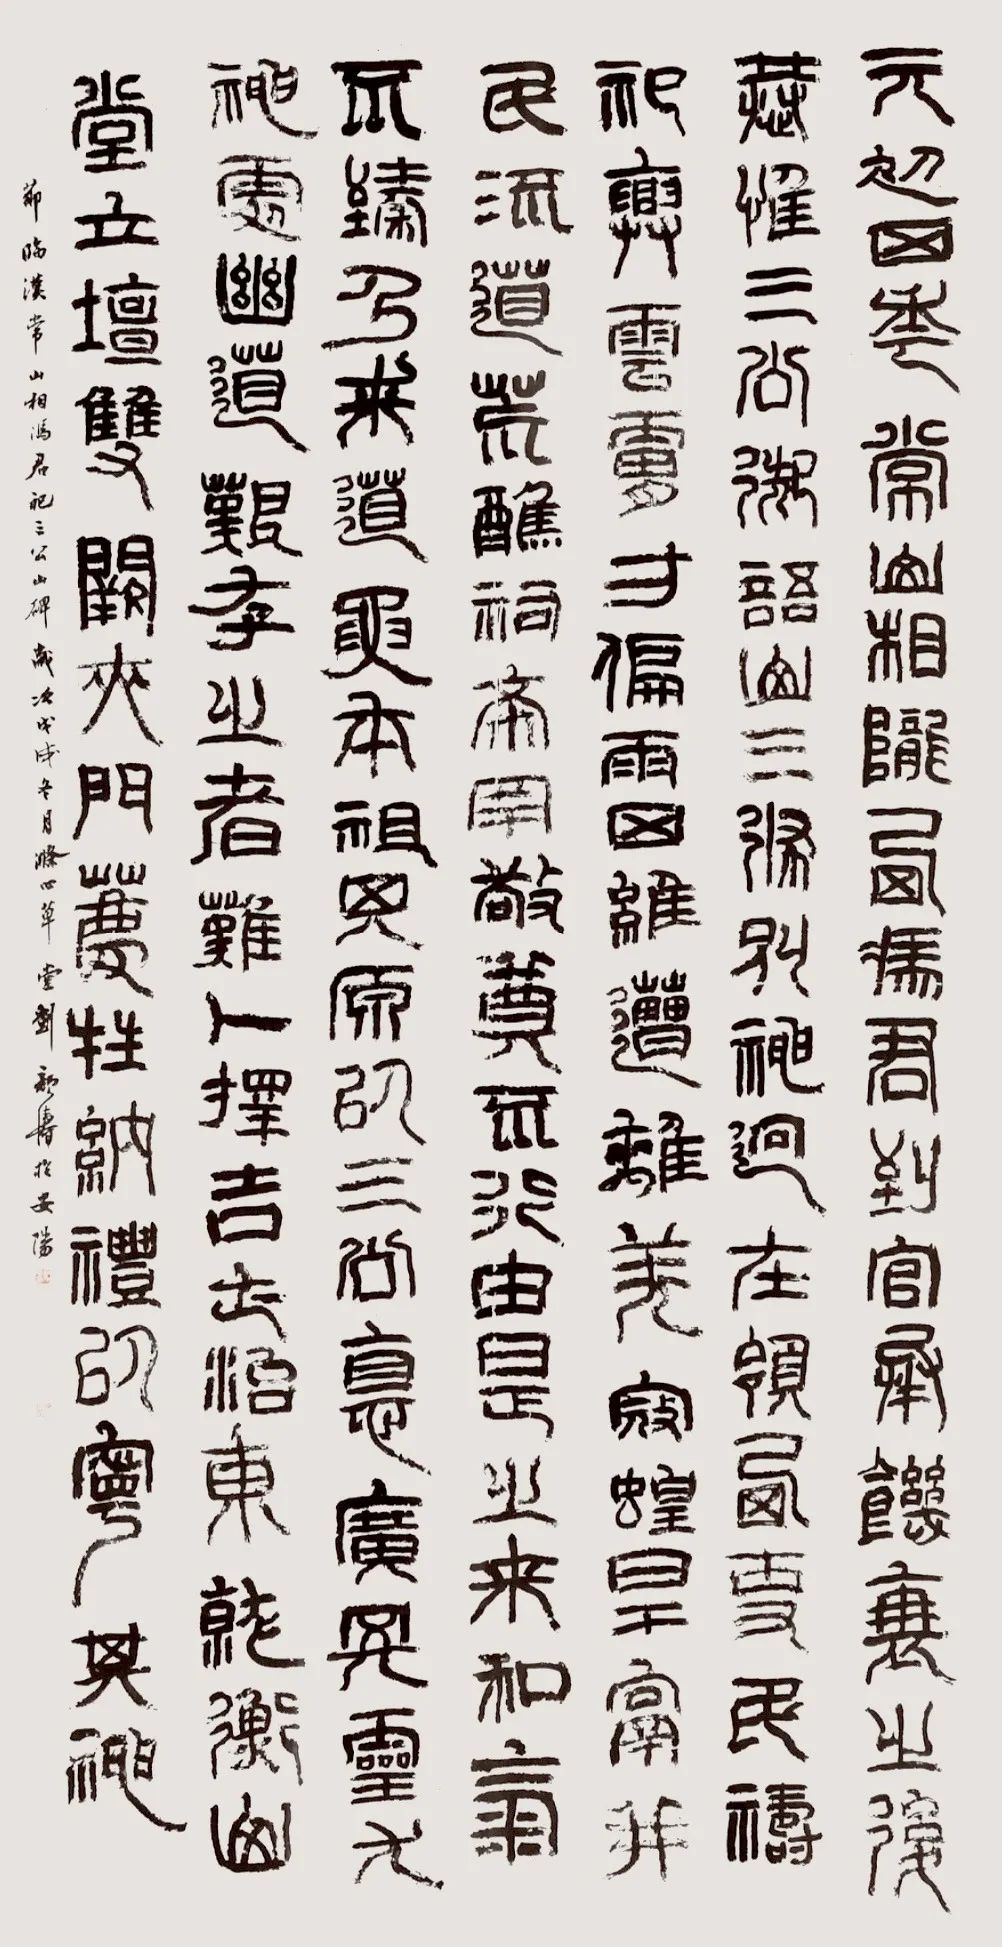 元初四年常山相隴西馮君到官承饑衰之後
惟三公御語山三條別神迥在領西吏民禱
祀興雲膚寸偏雨四維遭離羌寇蝗旱鬲并
民流道荒醮祠希罕敬奠不行由是之來和氣
不臻乃來道要本祖其原以三公德廣其靈尤
神處幽道艱存之者難卜擇吉土治東就衡山
堂立壇雙闕夾門薦牲納禮以寧其神
節臨漢常山相馮君祀三公山碑歲次戊戌冬月滌心草堂劉顏濤於安陽